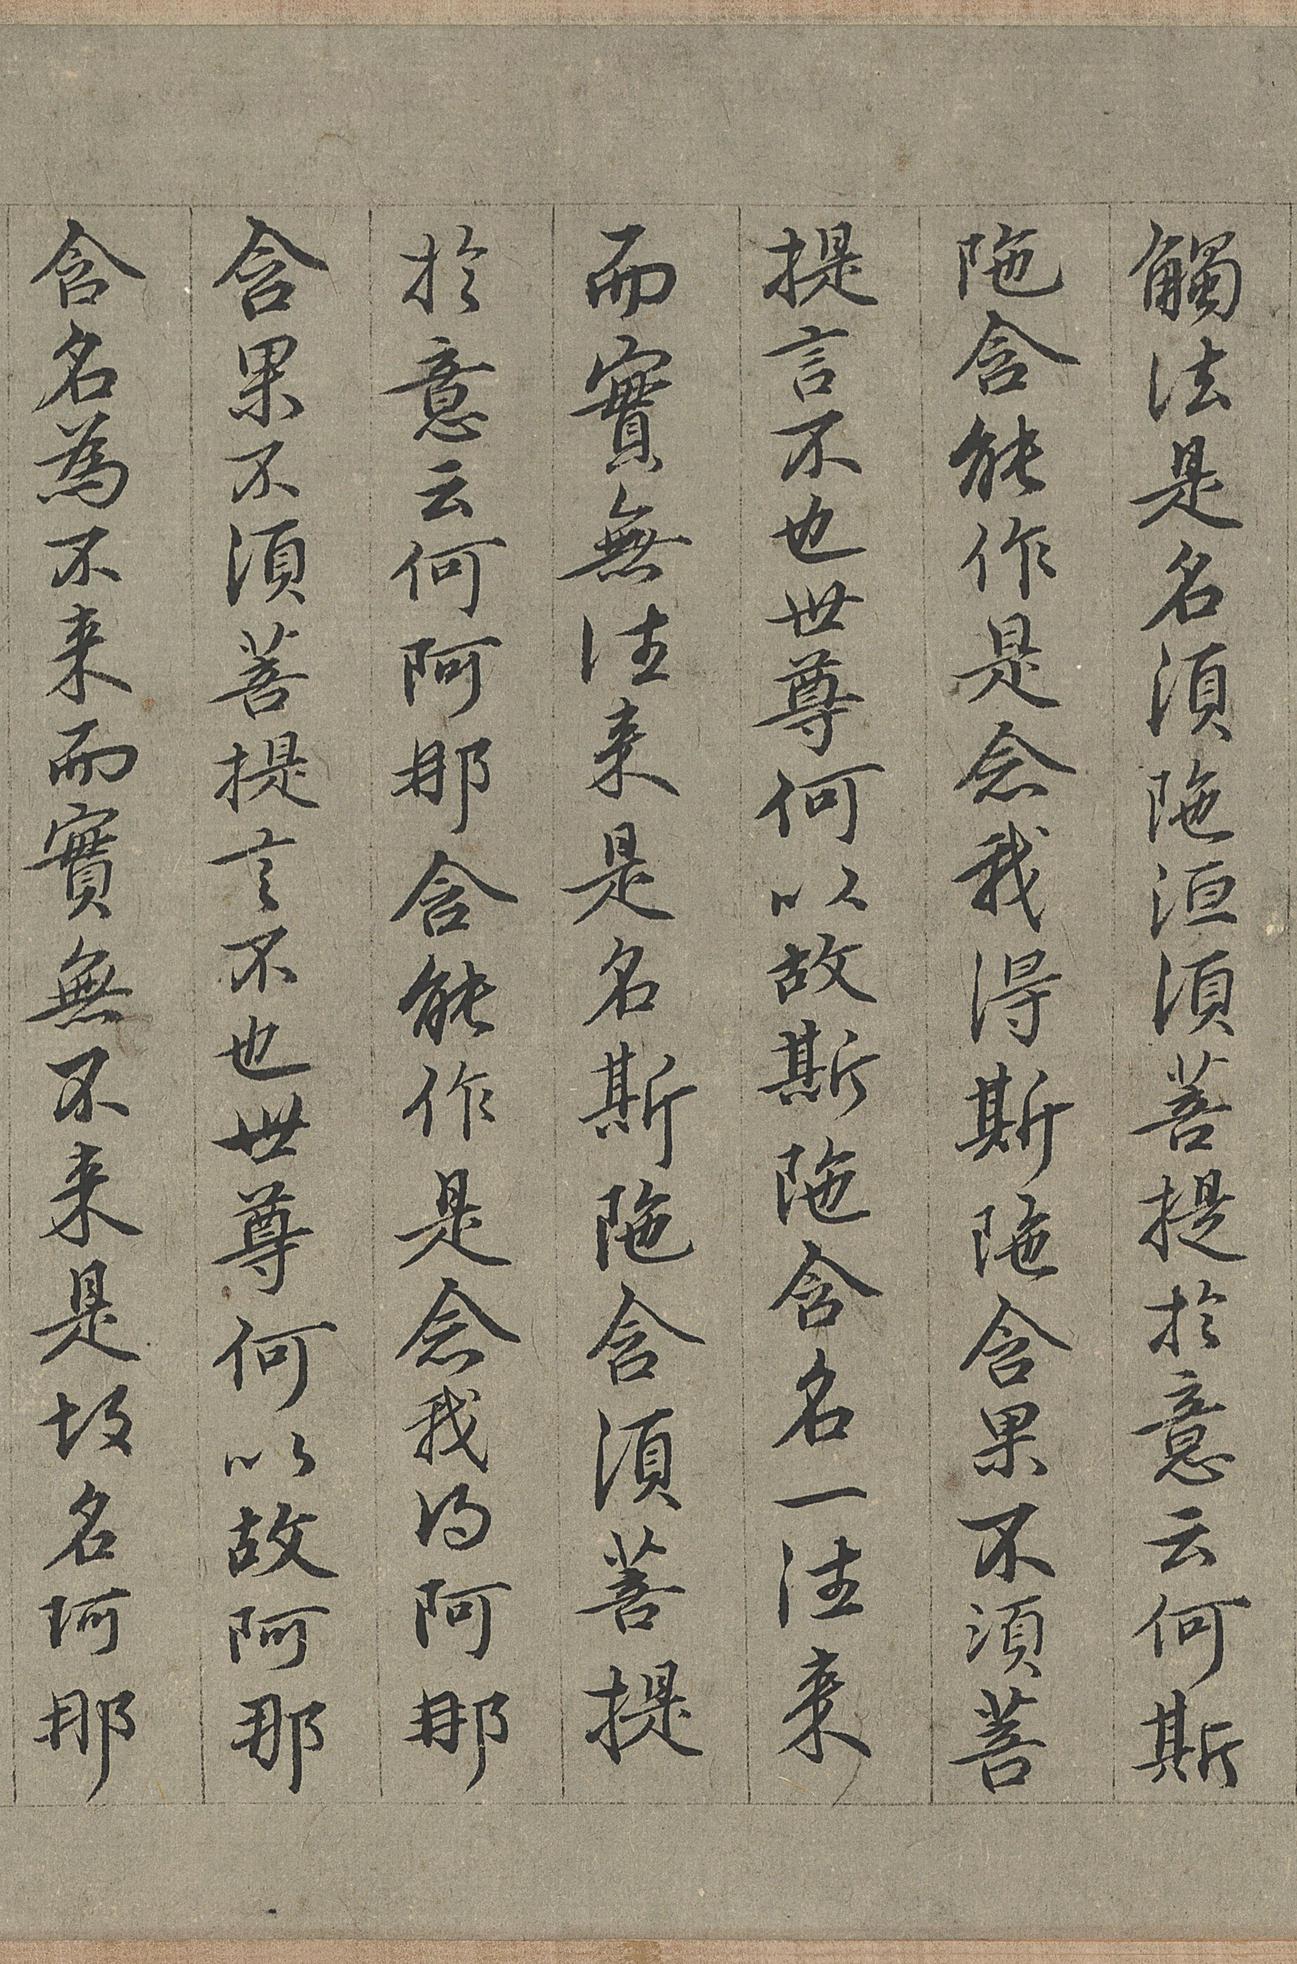 觸法是名須陁洹須菩提於意云何斯
陁含能作是念我得斯陁含果不須菩
提言不也世尊何以故斯陁含名一往来
而實無往来是名斯陁含須菩提
於意云何阿那含能作是念我得阿那
含果不須菩提言不也世尊何以故阿那
含名為不来而實無不来是故名阿那